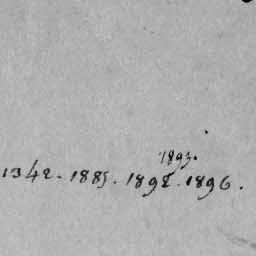 1893.
1342. 1885. 1892. 1896.